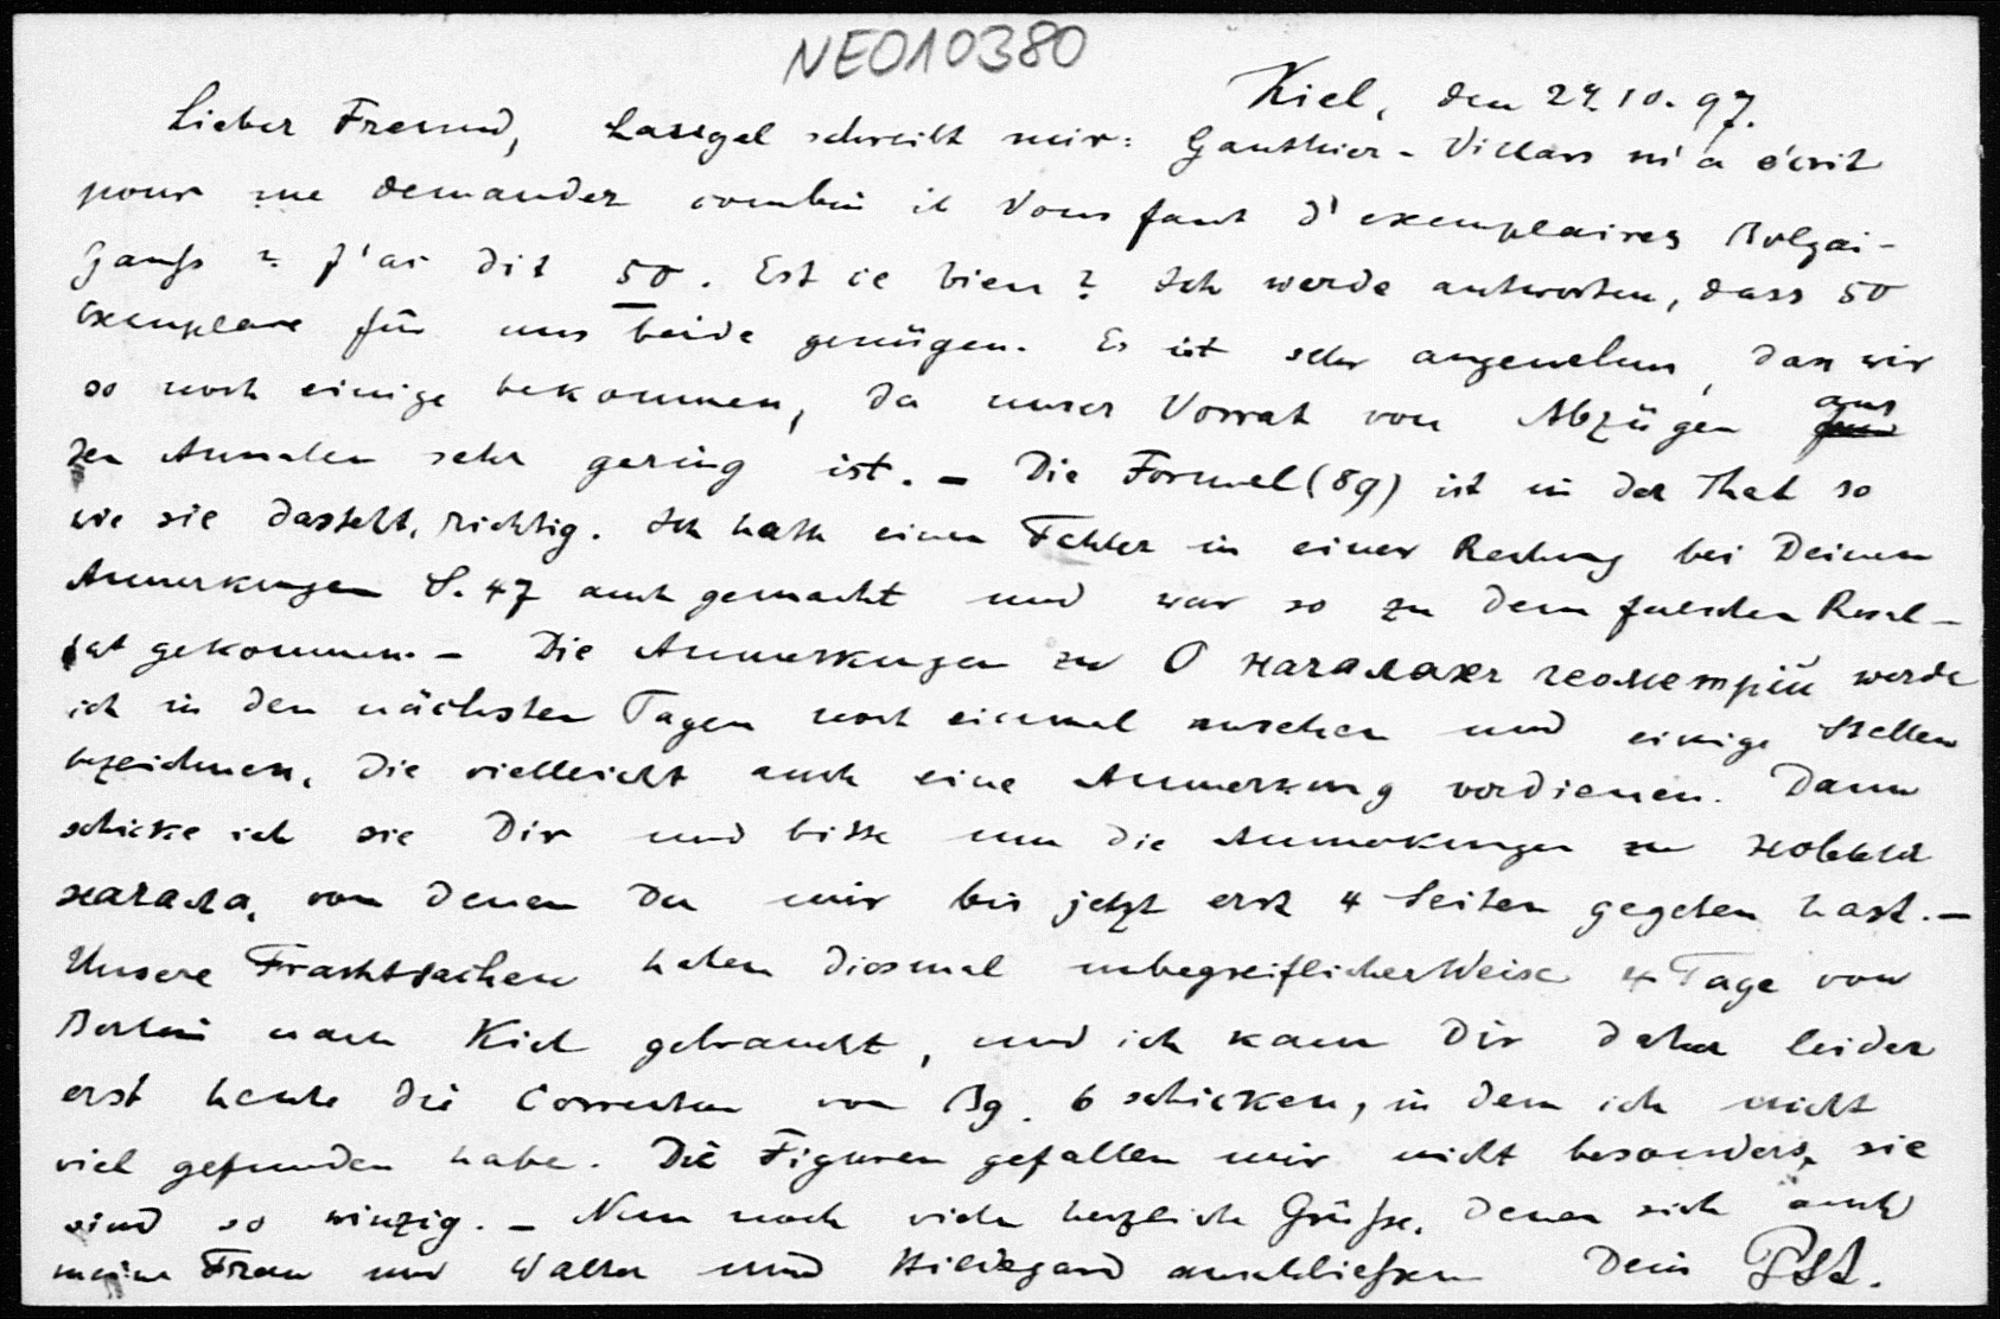 NEO10380
Kiel, den 24.10.97.
Lieber Freund, Laugel schreibt mir: Gauthier-Villars m'a écrit
pour me demander combien il Vous faut d'exemplaires Bolyai-
Gauß? J'ai dit 50. Est ce bien? Ich werde antworten, dass 50
Exemplare für uns beide genügen. Es ist sehr angenehm, dass wir
so noch einige bekommen, da unser Vorrat von Abzügen aus
den Annalen sehr gering ist. – Die Formel (89) ist in der That so
wie sie dasteht, richtig. Ich hatte einen Fehler in einer Rechnung bei Deinen
Anmerkungen S. 47 auch gemacht und war so zu dem falschen Resul-
tat gekommen. – Die Anmerkungen zu О началахъ геометріи werde
ich in den nächsten Tagen noch einmal ansehen und einige Stellen
bezeichnen, die vielleicht auch eine Anmerkung verdienen. Dann
schicke ich sie Dir und bitte um die Anmerkungen zu новыя
начала, von denen Du mir bis jetzt erst 4 Seiten gegeben hast. –
Unsere Frachtsachen haben diesmal unbegreiflicher Weise 4 Tage von
Berlin nach Kiel gebraucht, und ich kann Dir daher leider
erst heute die Correctur von Bg. 6 schicken, in dem ich nicht
viel gefunden habe. Die Figuren gefallen mir nicht besonders, sie
sind so winzig. – Nun noch viele herzliche Grüße, denen sich auch
meine Frau und Walter und Hildegard anschließen Dein PSt.